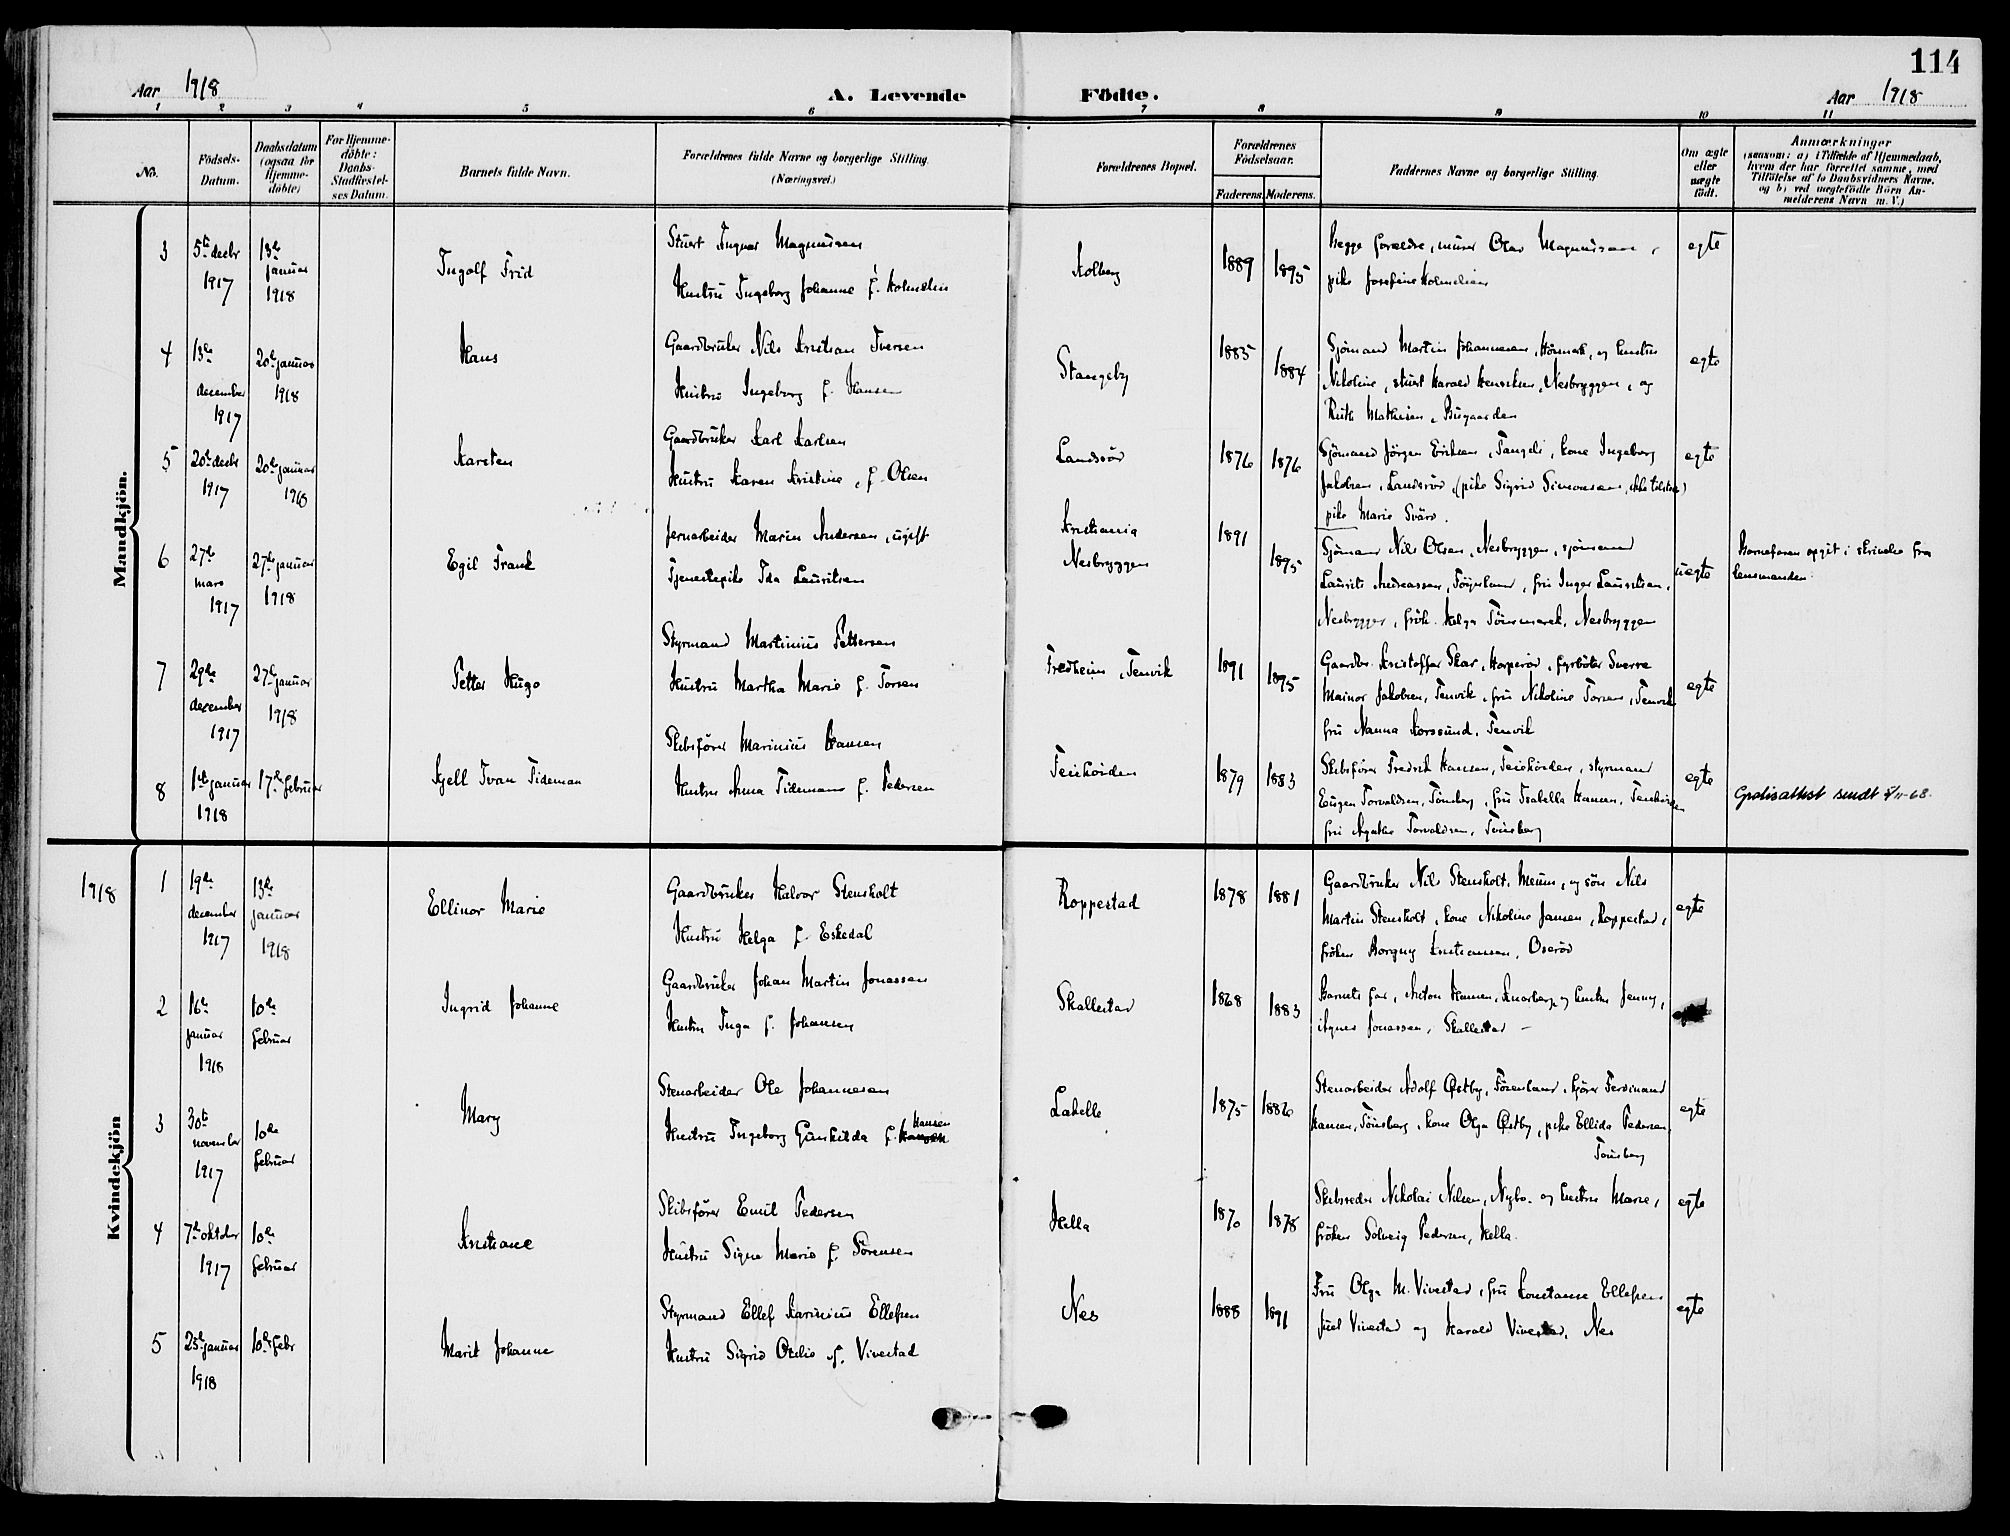 114
Aar 1918 A. Levende Födte. Aar 1918
1 2 3 4 5 6 7 8 9 10 11
No.
Födsels-
Datum.
Daabsdatum
(ogsaa for
Hjemme-
döbte)
For Hjemme-
döbte:
Daabs-
Stadfæstel-
ses Datum.
Barnets fulde Navn.
Forældrenes fulde Navne og borgerlige Stilling.
(Næringsvei.)
Forældrenes Bopæl.
Forældrenes
Födselsaar.
Faderens. Moderens.
Faddernes Navne og borgerlige Stilling.
Om ægte
eller
uægte
födt.
Anmærkninger
(saasom: a) i Tilfælde af Hjemmedaab,
hvem der har forrettet samme, med
Tilföielse af to Daabsvidners Navne,
og b) ved uægtefödte Börn An-
melderens Navn m. V.)
Mandkjön.
3
5te decbr
1917
13de
januar
1918
Ingolf Frid
Stuert Ingvar Magnussen
Hustru Ingeborg Johanne f. Holmelin
Solberg
1889
1895
Begge forældre, murer Olav Magnussen,
pike Josefine
egte
4
13de
december
1917
20de januar
1918
Hans
Gaardbruker Nils Kristian Iversen
Hustru Ingeborg f. Hansen
Stangeby
1885
1884
Sjömand Martin Johannesen, og hustru
Nikoline, stuert Harald Henriksen, Nesbryggen, og
Ruth Mathisen, Bugaarden
egte
5
20de decbr
1917
20de januar
1918
Karsten
Gaardbruker Karl Karlsen
Hustru Karen Kristine, f. Olsen
Landsröd
1876
1876
Sjömand Jörgen Eriksen, kone Ingeborg
Jakobsen, Landsröd, (pike Sigrid Simonsen, ikke tilstede)
pike Marie Svärd.
egte
6
27de
mars
1917
27de januar
1918
Egil Frank
Jernarbeider Marin Andersen, ugift
Tjenestepike Ida Lauritsen
Kristiania
Nesbryggen
1891
1895
Sjömand Nils Olsen, Nesbryggen, sjömand
Laurits Andreassen, fru Inger Lauritsen,
Nesbryggen, frök. Helga Tönsmarek, Nesbryggen
uegte
Barnefaren opgit i skrivelse fra
lensmanden.
7
29de
december
1917
27de januar
1918
Petter Hugo
Styrmand Martinius Pettersen
Hustru Martha Marie f. Torsen
Fredheim, Tenvik
1891
1895
Gaardbr. Kristoffer Skar, fyrböter Sverre
Mainor Jakobsen, Tenvik, fru Nikoline Torsen, Tenvik
fru Nanna Korssund, Tenvik
egte
8
1ste januar
1918
17de februar
Kjell Ivan Tideman
Skibsförer Marinius Hansen
Hustru Anna Tidemann f. Pedersen
Teiehöiden
1879
1883
Skibsförer Fredrik Hansen, Teiehöiden, styrmand
Eugen Torvaldsen, Tönsberg, fru Isabella Hansen, Teiehöiden
fru Agathe Torvaldsen, Tönsberg
egte
Gratisattest sendt 5/11-68.
1918
Kvindekjön
1
19de
december
1917
13de
januar
1918
Ellinor Marie
Gaardbruker Halvor Stensholt
Hustru Helga f. Eskedal
Roppestad
1878
1881
Gaardbruker Nils Stensholt, Meum, og sön Nils
Martin Stensholt, kone Nikoline Jansen, Roppestad,
fröken Borgny Kristiansen, Oseröd
egte
2
16de
januar
1918
10de
februar
Ingrid Johanne
Gaardbruker Johan Martin Jonassen
Hustru Inga f. Johansen
Skallestad
1868
1883
Barnets far, Anton Hansen, Knarberg, og hustru Jenny,
Agnes Jonassen, Skallestad
3
30te
november
1917
10de
februar
Mary
Stenarbeider Ole Johannesen
Hustru Ingeborg Gunhilda f. Hansen
Labelle
1875
1886
Stenarbeider Adolf Østby, kjörer Ferdinand
Hansen, Tönsberg, kone Olga Østby, pike Ellida Pedersen,
Tönsberg
egte
4
7de oktober
1917
10de
februar
Kristiane
Skibsförer Emil Pedersen
Hustru Signe Marie f. Sörensen
Hella
1870
1878
Skibsreder Nikolai Nilsen, Nybo og hustru Marie,
fröken Solveig Pedersen, Hella.
egte
5
25de januar
1918
10de febr
Marit Johanne
Styrmand Ellef Karinius Ellefsen
Hustru Sigrid Otilie f. Vivestad
Nes
1888
1891
Fru Olga M. Vivestad, fru Konstanse Ellefsen
Juel Vivestad og Harald Vivestad, Nes
egte